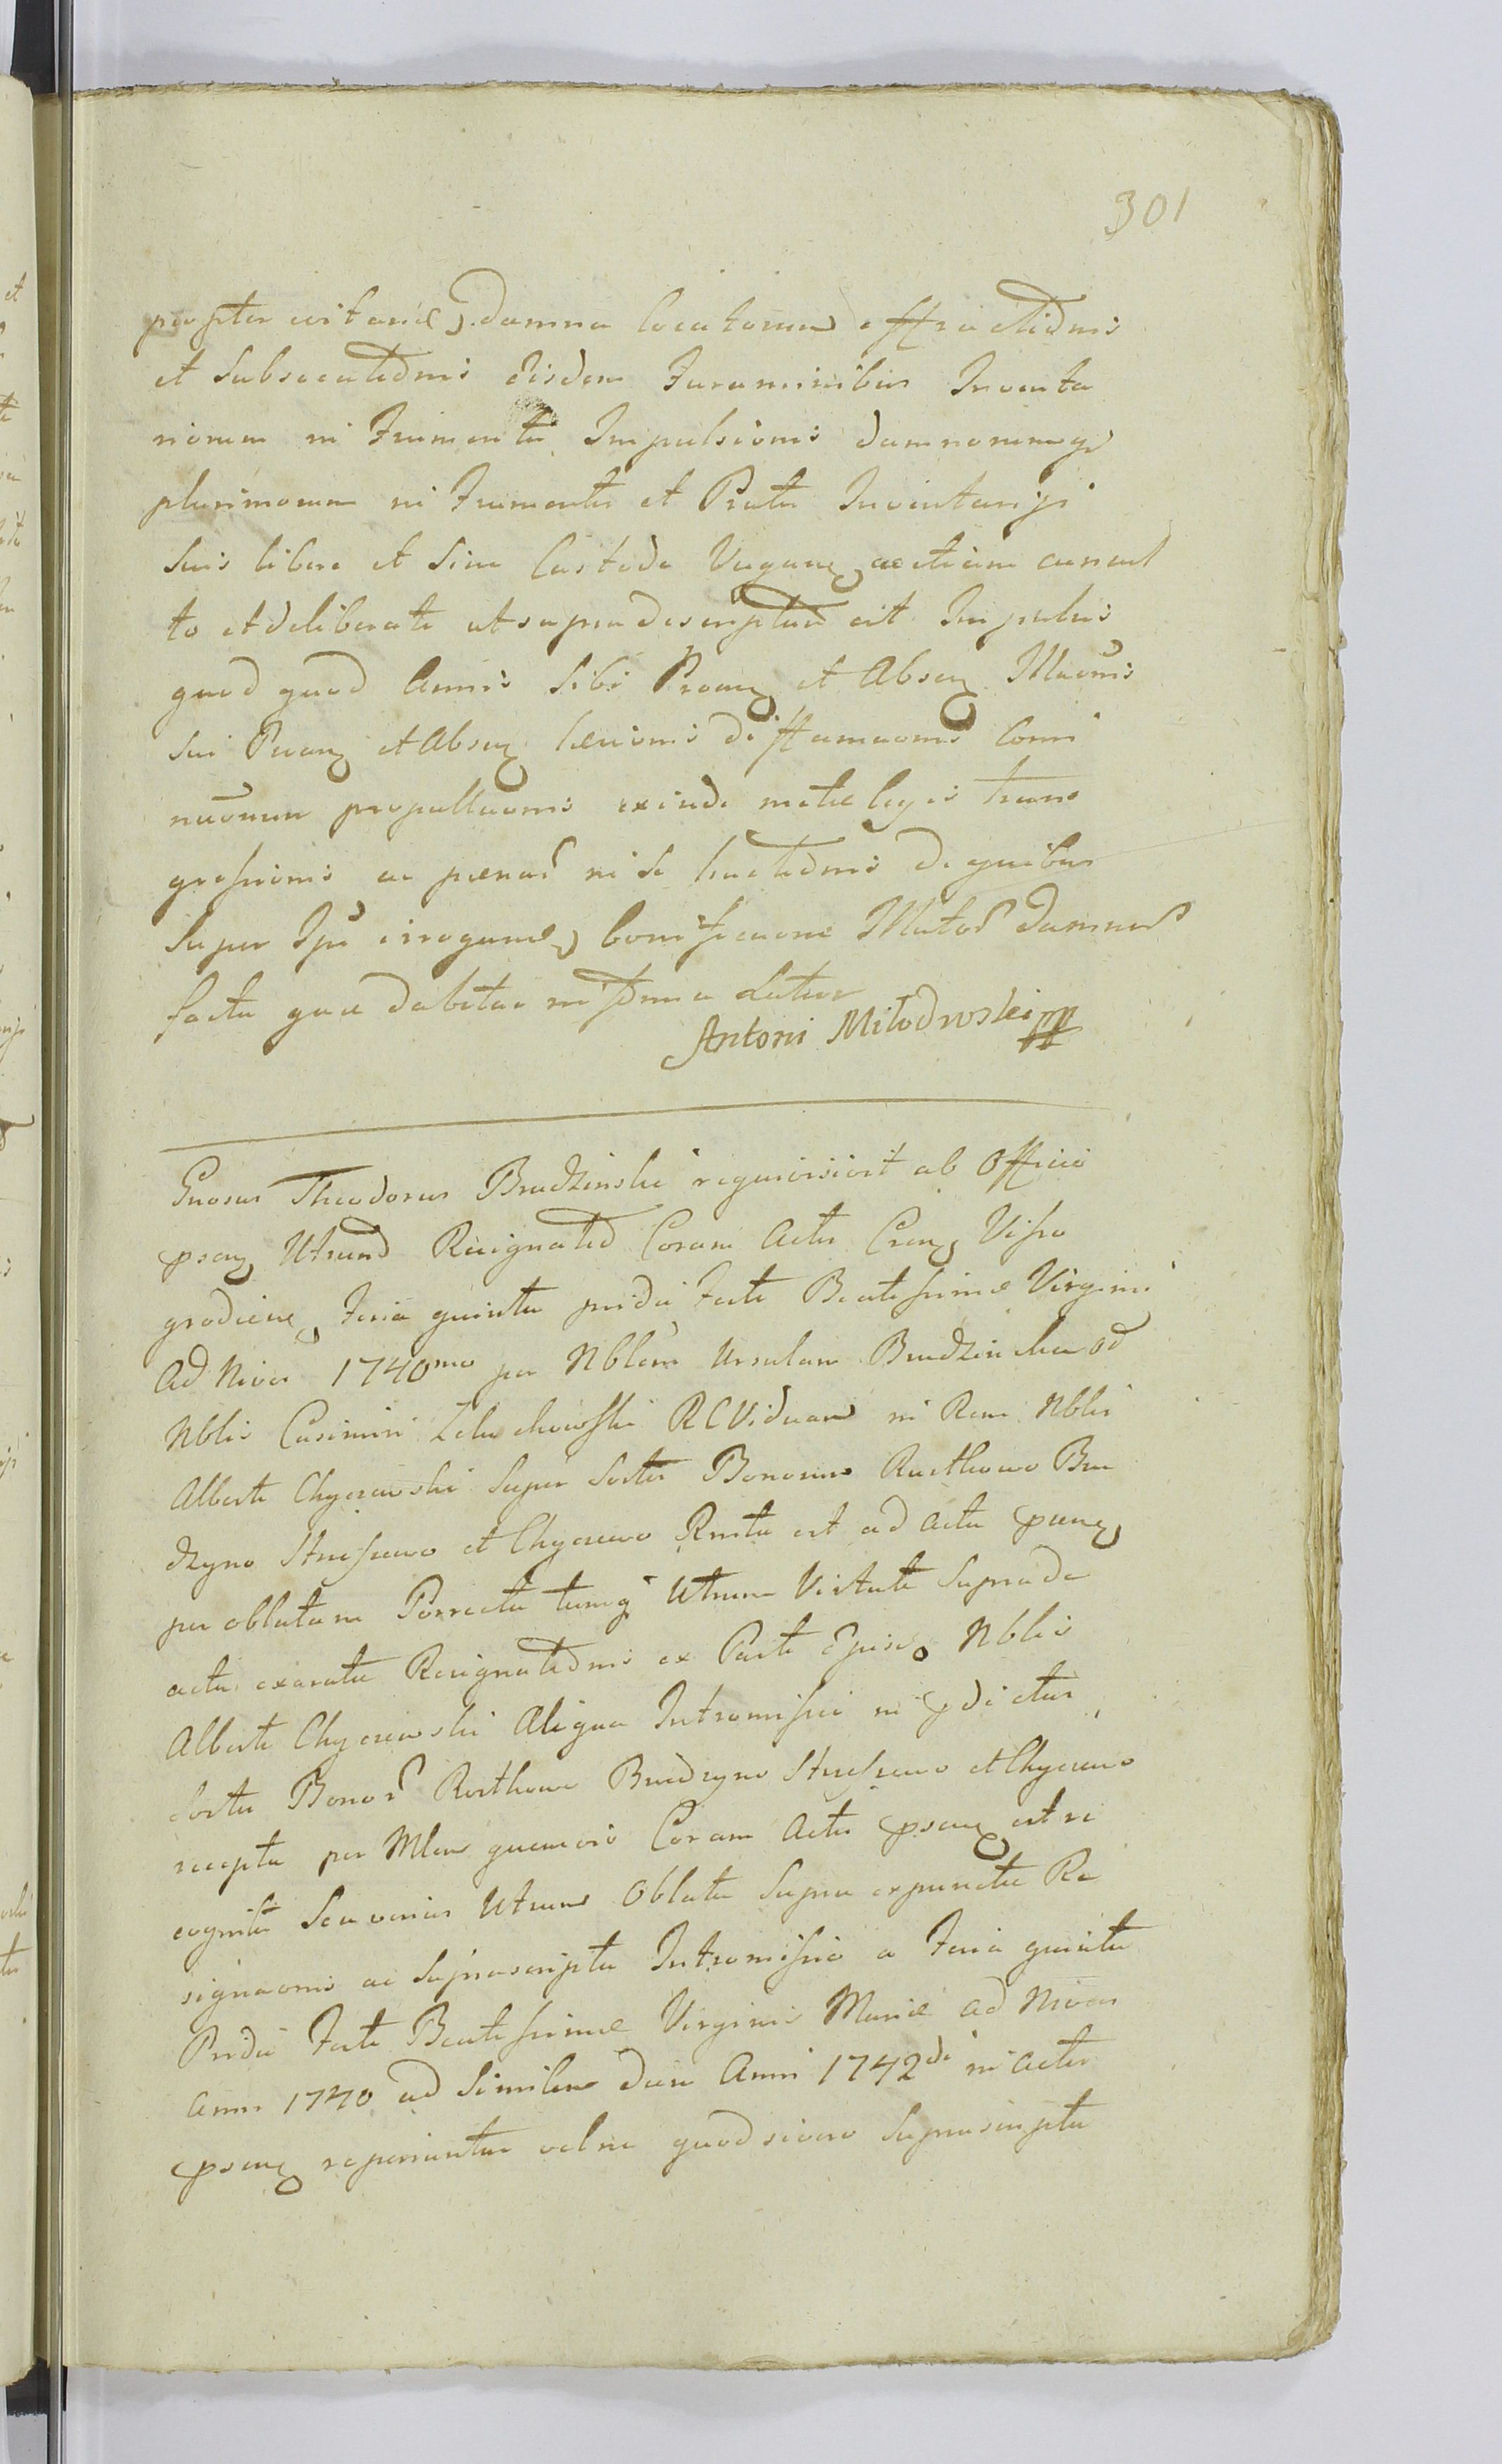 301
propter evitand. damna locatorum effractionis
et subsecutionis eisdem Foraminibus Inventa
riorum in Frumenta Impulsionis damnorumq
plurimorum in Frumentis et Pratis Inventarijs
suis libere et sine Custode Vagan. ac etiam consul
to et deliberate ut supra descriptum est Impulsis
quod quod Annis sibi Proan. et Absen.
sui Proan. et Absen. læsionis diffamaonis Comi
nuonum propallaonis exinde metæ legis trans
gressionis ac pœnas in se tractionis de quibus
super Ipso irrogand. bonificaone Illator damnor
facta qua dabitur in Termino latius
Antoni Miłodrowski mpp
Gnosus Theodorus Brudzinski requisivit ab Officio
psen. Utrum Resignatio Coram Actis Cren. Visso
grodien. Feria quinta pridie Festi Beatissimæ Virginis
Ad Nives 1740mo per Nblem Ursulam Brudzinska od
Nblis Casimiri Zeluchowski RC Viduam in Rem Nblis
Alberti Chyczewski super sortes Bonorum Rostkowo Bru
dzyno Strusewo et Chyczewo Rmta est ad Acta psen.
per oblatam Porrecta tumq Utrum Virtute supra de
acta exarata Resignationis ex Parte Ejusd. Nblis
Alberti Chyczewski Aliqua Intromissio in pdictas
sortes Bonor Rostkowo Brudzyno Strusewo et Chyczewo
recepta per Mlem quemvis Coram Actis psen. est re
cognita seu verius Utrum Oblata supra expuncta Re
signaonis ac suprascripta Intromissio a Feria quinta
Pridie Festi Beatissimæ Virginis Mariæ ad Nives
Anni 1740 ad similem diem Anni 1742di in Actis
psen. reperiuntur vel ne quod si vero suprascripta